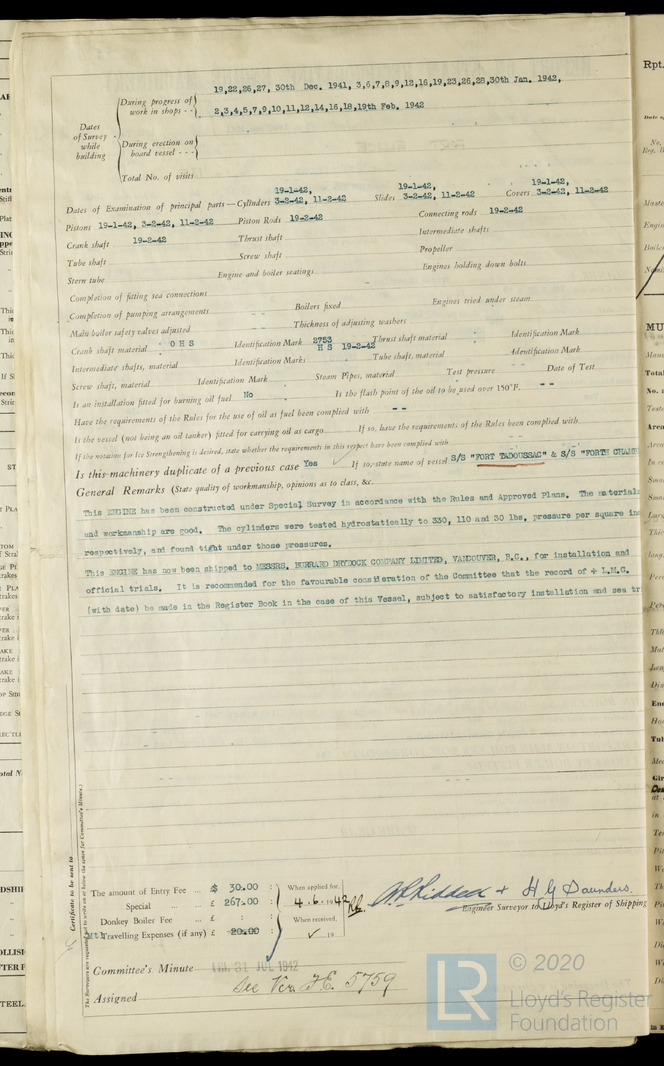 19,22,26,27, 30th Dec. 1941, 3,6,7,8,9,12,16,19,23,26,28,30th Jan. 1942,
During progress of work in shops - -
2,3,4,5,7,9,10,11,12,14,16,18,19th Feb. 1942
Dates of Survey while building
During erection on board vessel - - -
Total No. of visits
Dates of Examination of principal parts—Cylinders 19-1-42, 3-2-42, 11-2-42 Slides 19-1-42, 3-2-42, 11-2-42 Covers 19-1-42, 3-2-42, 11-2-42
Pistons 19-1-42, 3-2-42, 11-2-42 Piston Rods 19-2-42 Connecting rods 19-2-42
Crank shaft 19-2-42 Thrust shaft Intermediate shafts
Tube shaft Screw shaft Propeller
Stern tube Engine and boiler seatings Engines holding down bolts
Completion of fitting sea connections
Completion of pumping arrangements Boilers fixed Engines tried under steam
Main boiler safety valves adjusted Thickness of adjusting washers
Crank shaft material O H S Identification Mark 2753 H S 19-2-42 Thrust shaft material Identification Mark
Intermediate shafts, material Identification Marks Tube shaft, material Identification Mark
Screw shaft, material Identification Mark Steam Pipes, material Test pressure Date of Test
Is an installation fitted for burning oil fuel No Is the flash point of the oil to be used over 150°F. --
Have the requirements of the Rules for the use of oil as fuel been complied with --
Is the vessel (not being an oil tanker) fitted for carrying oil as cargo If so, have the requirements of the Rules been complied with
If the notation for Ice Strengthening is desired, state whether the requirements in this respect have been complied with
Is this machinery duplicate of a previous case Yes If so, state name of vessel S/S "FORT TADOUSSAC" & S/S "FORTH
General Remarks (State quality of workmanship, opinions as to class, &c.
This ENGINE has been constructed under Special Survey in accordance with the Rules and Approved Plans. The materials
and workmanship are good. The cylinders were tested hydrostatically to 330, 110 and 30 lbs, pressure per square in
respectively, and found tight under those pressures.
This ENGINE has now been shipped to MESSRS. BURRARD DRYDOCK COMPANY LIMITED, VANCOUVER, B.C., for installation and
official trials. It is recommended for the favourable consideration of the Committee that the record of + L.M.C.
(with date) be made in the Register Book in the case of this Vessel, subject to satisfactory installation and sea
Certificate to be sent to
The amount of Entry Fee ... $ 30.00 : When applied for,
Special ... £ 267.00 : 4.6.1942
Donkey Boiler Fee ... £ : When received,
Travelling Expenses (if any) £ 20.00 : 19
H G Saunders.
Engineer Surveyor to Lloyd's Register of Shipping
Committee's Minute 31 JUL 1942
Assigned See Ver. F.E. 5759
© 2020
LR
Lloyd's Register
Foundation
Rpt.